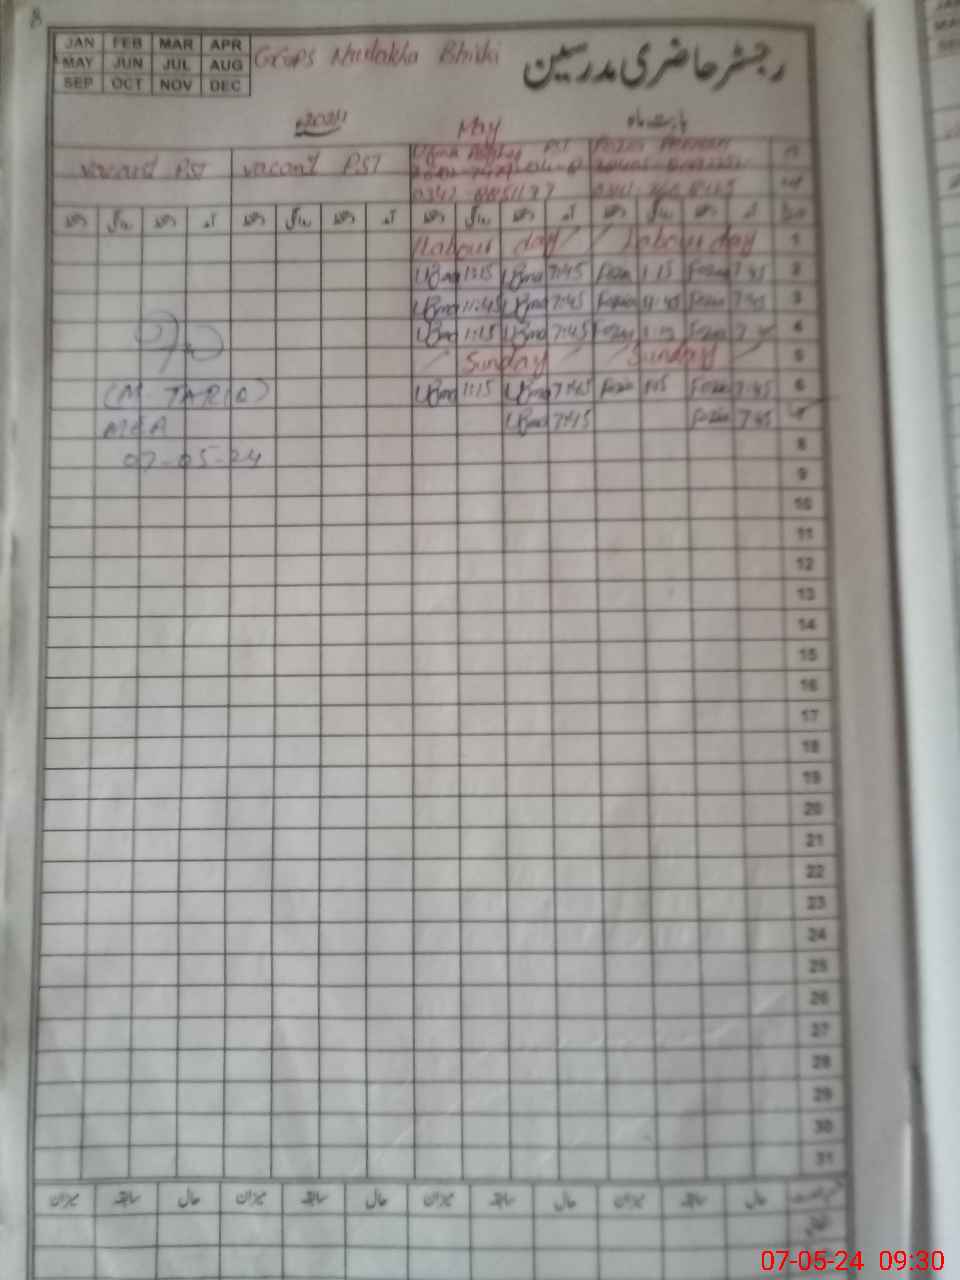 8
JAN FEB MAR APR
MAY JUN JUL AUG
SEP OCT NOV DEC
GGPS Bhikhi
رجسٹر حاضری مدرسین
2024 May بابت ماہ
vacant PST vacant P.ST PST
رخصت روانگی رخصت آمد رخصت روانگی رخصت آمد رخصت روانگی رخصت آمد رخصت روانگی رخصت آمد
Labour day Labour day 1
Uzma 1:15 Uzma 7:45 Fozia 1:15 Fozia 7:45 2
Uzma 11:45 Uzma 7:45 Fozia 11:45 Fozia 7:45 3
Uzma 1:15 Uzma 7:45 Fozia 1:15 Fozia 7:45 4
Sunday Sunday 5
Uzma 1:15 Uzma 7:45 Fozia 1:15 Fozia 7:45 6
Uzma 7:45 Fozia 7:45
(M. TARIQ)
MEA
07-05-24
8
9
10
11
12
13
14
15
16
17
18
19
20
21
22
23
24
25
26
27
28
29
30
31
میزان سابقہ حال میزان سابقہ حال میزان سابقہ حال میزان سابقہ حال
07-05-24 09:30